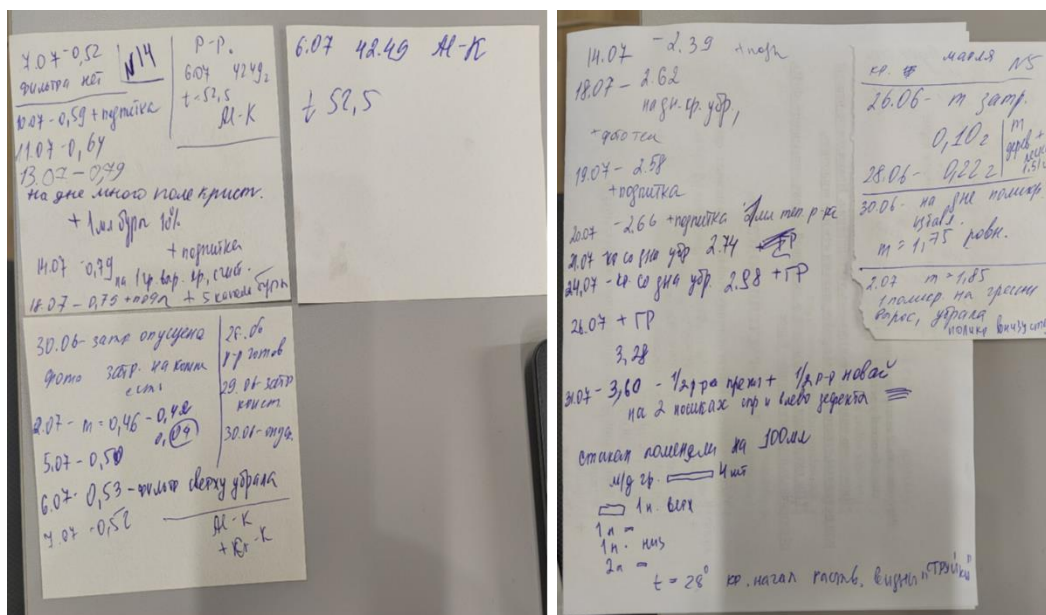 7.07 - 0,52
фильтра нет
№14
10.07 - 0,59 + подпитка
11.07 - 0,64
13.07 - 0,79
на дне много поле крист.
+ 1 мл буры 10%
+ подпитка
14.07 - 0,79
18.07 - 0,75 + подп + 5 капель буры
Р-Р.
6.07 42.49г
t = 52,5
Al-K
6.07 42.49 Al-K
t 52,5
30.06 - затр опущена
фото затр. на конт
есть
2.07 - m = 0,46 - 0,42
0,04
5.07 - 0,50
6.07 - 0,53 - фильтр сверху убрала
7.07 - 0,52
28.06
р-р готов
29.06 - затр
крист.
30.06 - опущ.
Al-K
+ Cr-K
14.07 - 2.39 + подп
18.07 - 2.62
на дн. кр. убр,
+ фото тел
19.07 - 2.58
+ подпитка
20.07 - 2.66 + подпитка 2 мл теп. р-ра
21.07 - со дна убр 2.74 + ГР
24.07 - кр. со дна убр. 2.98 + ГР
26.07 + ГР
3,28
31.07 - 3,60 - 1/2 р-ра + 1/2 р-р новой
на 2
стакан поменяли на 100 мл
м/д гр. 4 шт
1 п. верх
1 п =
1 п. низ
2 п =
t = 28° кр. начал раств. видны "струйки"
кр. масля №5
26.06 - m затр.
0,10 г
28.06 - 0,22 г
m
30.06 - на дне поликр.
m = 1,75 ровн.
2.07 m = 1,85
1 поликр. на
убрала